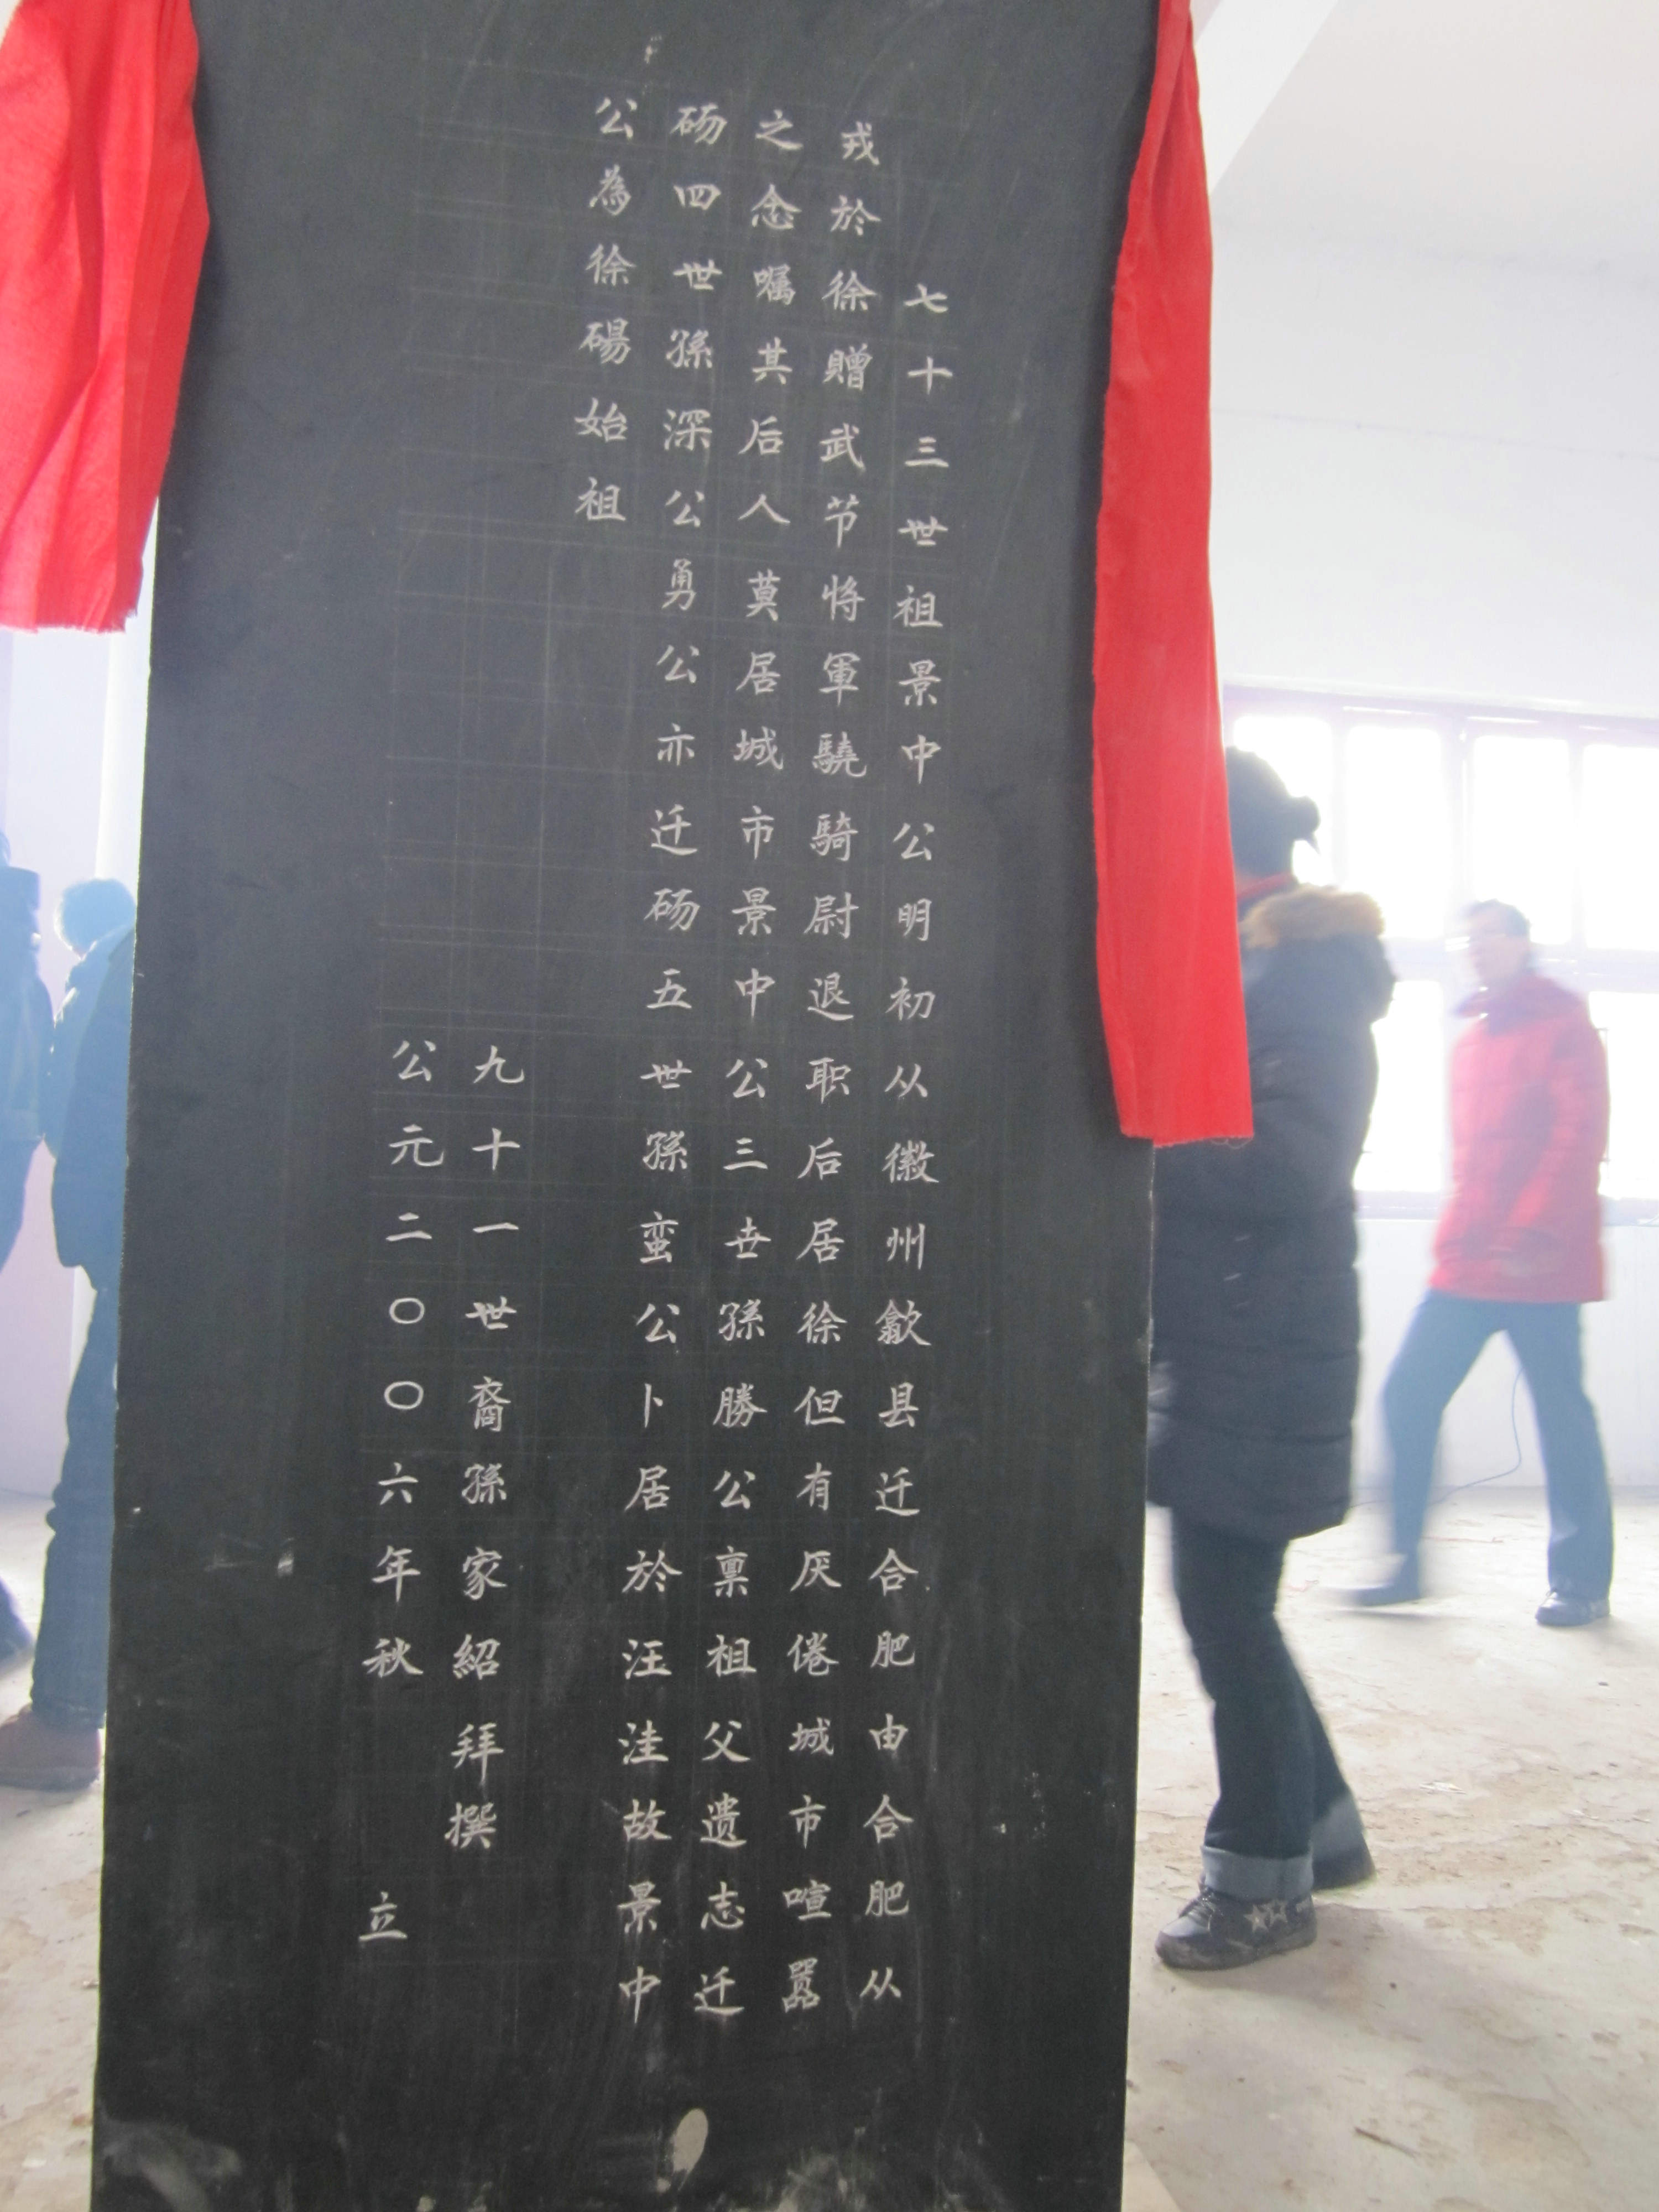 七十三世祖景中公明初从徽州歙县迁合肥由合肥从
戎於徐贈武节将軍驍騎尉退职后居徐但有厌倦城市喧嚣
之念嘱其后人莫居城市景中公三世孫勝公禀祖父遗志迁
砀四世孫深公勇公亦迁砀五世孫蛮公卜居於汪洼故景中
公為徐碭始祖
九十一世裔孫家紹拜撰
公元二〇〇六年秋 立